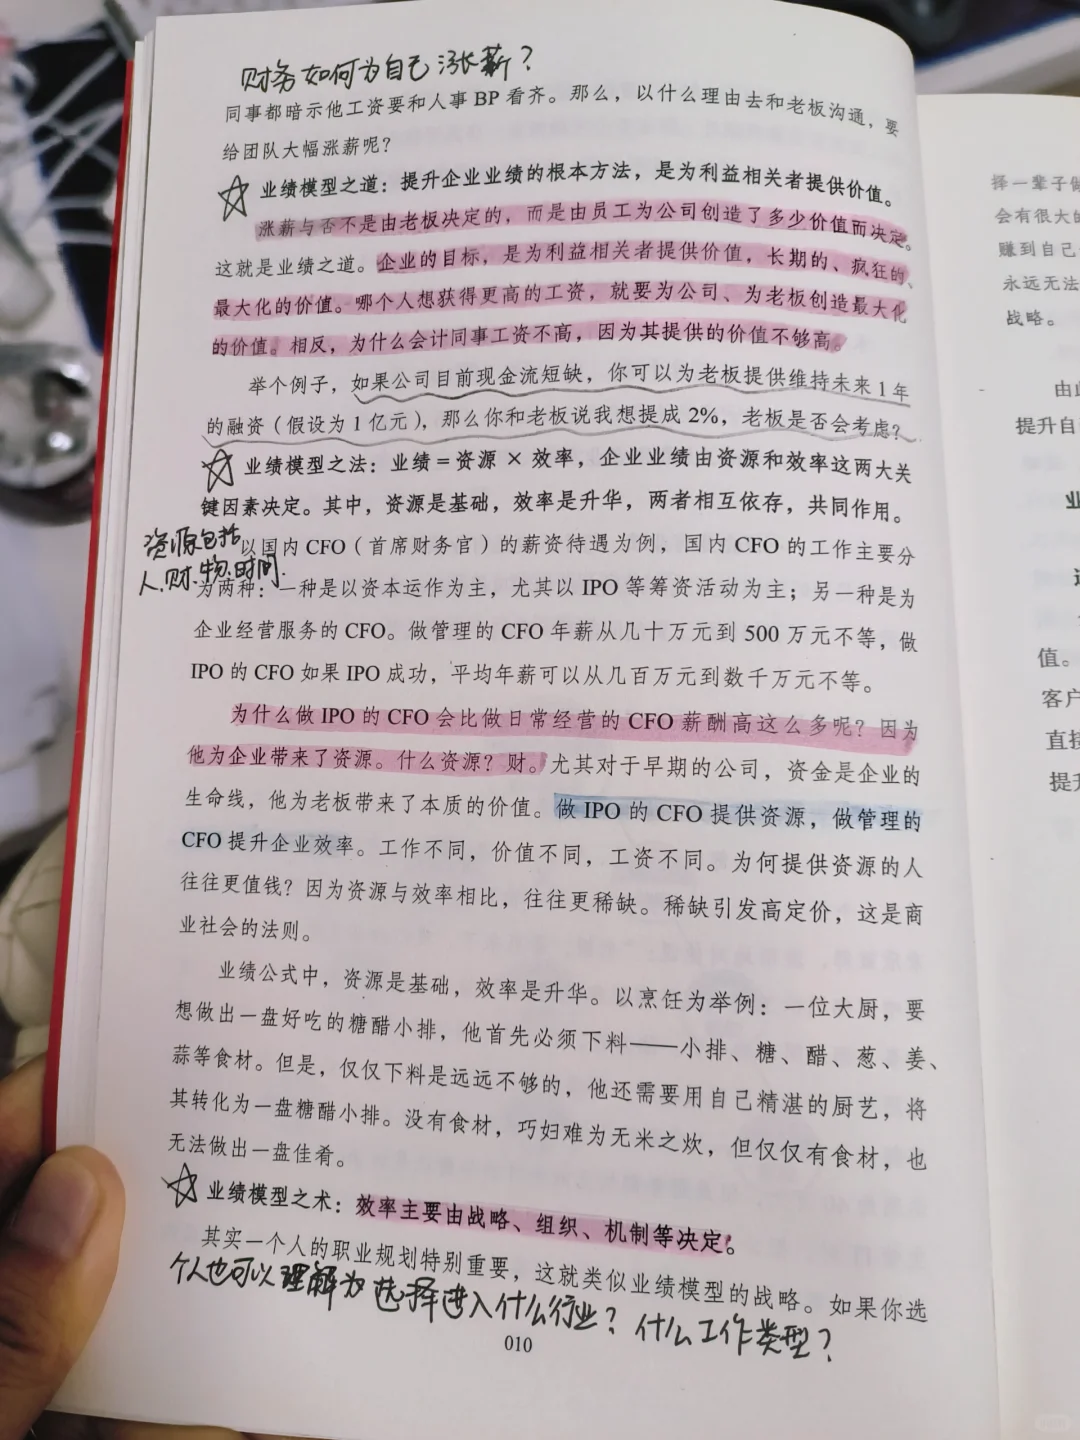 财务如何为自己涨薪？
同事都暗示他工资要和人事 BP 看齐。那么，以什么理由去和老板沟通，要
给团队大幅涨薪呢？
业绩模型之道：提升企业业绩的根本方法，是为利益相关者提供价值。
涨薪与否不是由老板决定的，而是由员工为公司创造了多少价值而决定。
这就是业绩之道。企业的目标，是为利益相关者提供价值，长期的、疯狂的、
最大化的价值。哪个人想获得更高的工资，就要为公司、为老板创造最大化
的价值。相反，为什么会计同事工资不高，因为其提供的价值不够高。
举个例子，如果公司目前现金流短缺，你可以为老板提供维持未来 1 年
的融资（假设为 1 亿元），那么你和老板说我想提成 2%，老板是否会考虑？
业绩模型之法：业绩 = 资源 × 效率，企业业绩由资源和效率这两大关
键因素决定。其中，资源是基础，效率是升华，两者相互依存，共同作用。
资源包括
人、财、物、时间.
以国内 CFO（首席财务官）的薪资待遇为例，国内 CFO 的工作主要分
为两种：一种是以资本运作为主，尤其以 IPO 等筹资活动为主；另一种是为
企业经营服务的 CFO。做管理的 CFO 年薪从几十万元到 500 万元不等，做
IPO 的 CFO 如果 IPO 成功，平均年薪可以从几百万元到数千万元不等。
为什么做 IPO 的 CFO 会比做日常经营的 CFO 薪酬高这么多呢？因为
他为企业带来了资源。什么资源？财。尤其对于早期的公司，资金是企业的
生命线，他为老板带来了本质的价值。做 IPO 的 CFO 提供资源，做管理的
CFO 提升企业效率。工作不同，价值不同，工资不同。为何提供资源的人
往往更值钱？因为资源与效率相比，往往更稀缺。稀缺引发高定价，这是商
业社会的法则。
业绩公式中，资源是基础，效率是升华。以烹饪为举例：一位大厨，要
想做出一盘好吃的糖醋小排，他首先必须下料——小排、糖、醋、葱、姜、
蒜等食材。但是，仅仅下料是远远不够的，他还需要用自己精湛的厨艺，将
其转化为一盘糖醋小排。没有食材，巧妇难为无米之炊，但仅仅有食材，也
无法做出一盘佳肴。
业绩模型之术：效率主要由战略、组织、机制等决定。
其实一个人的职业规划特别重要，这就类似业绩模型的战略。如果你选
个人也可以理解为选择进入什么行业？什么工作类型？
010
择一辈子做
会有很大的
赚到自己
永远无法
战略。
由此
提升自
业
值。
客户
直接
提升